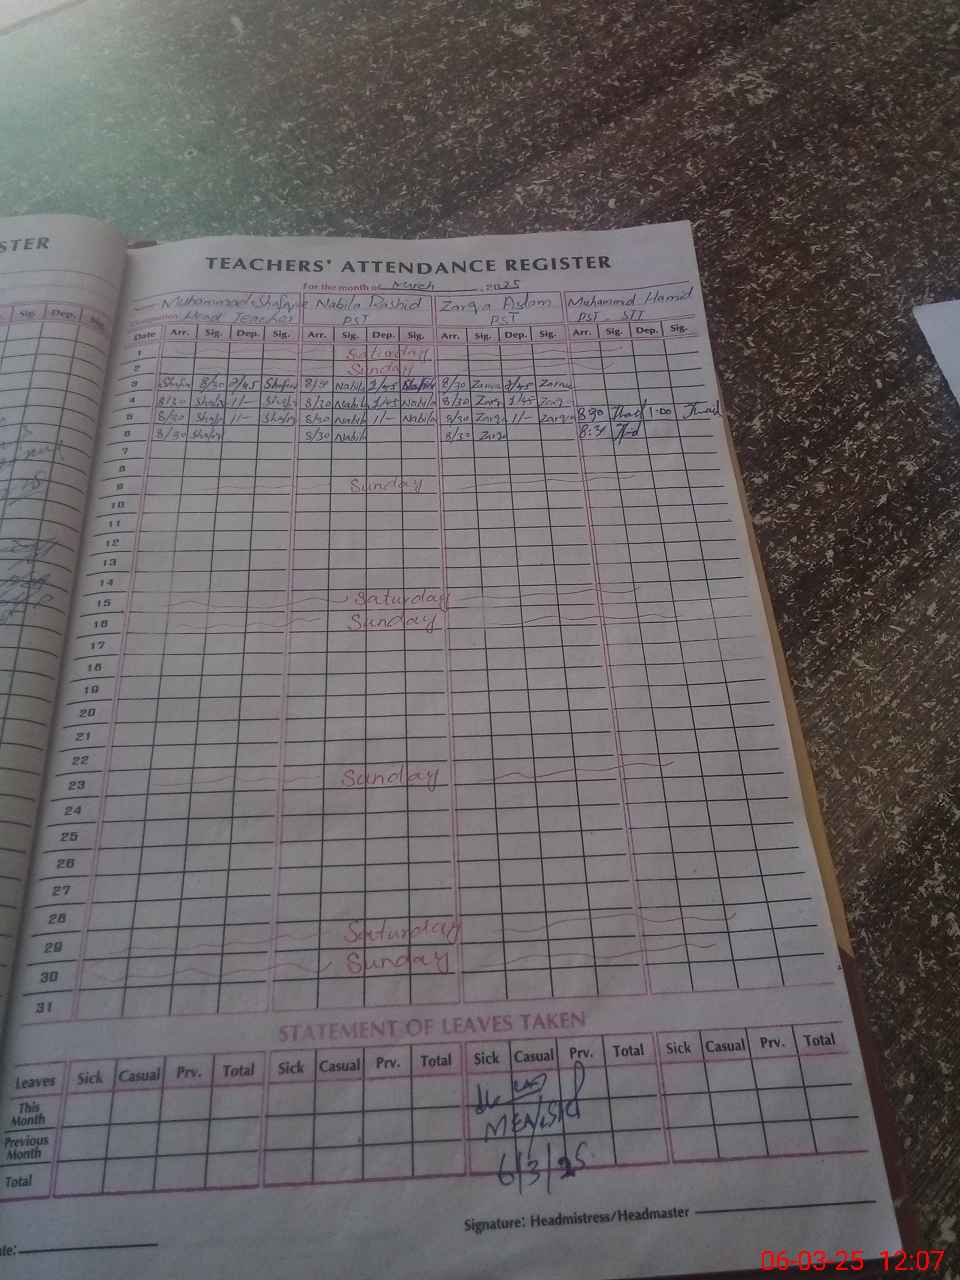 STER
TEACHERS' ATTENDANCE REGISTER
For the month of March 2025
Muhammad Nabila Rashid Zarqa Aslam Muhammad Hamid
Designation Head Teacher PST PST PST - STI
Date Arr. Sig. Dep. Sig. Arr. Sig. Dep. Sig. Arr. Sig. Dep. Sig. Arr. Sig. Dep. Sig.
Sig. Dep. Sig.
1 Saturday
2 Sunday
3 8/30 Nabila 1/45 8/30 1/45
4 8/30 1/- 8/30 Nabila 1/45 Nabila 8/30 Zarq 1/45 Zarq
5 8/30 1/- 8/30 Nabila 1/- Nabila 8/30 Zarqa 1/- Zarqa 8:30 1:00
6 8/30 8/30 Nabila 8/30 Zarqa 8:30
7
8
9 Sunday
10
11
12
13
14
15 Saturday
16 Sunday
17
18
19
20
21
22
23 Sunday
24
25
26
27
28
29 Saturday
30 Sunday
31
STATEMENT OF LEAVES TAKEN
Leaves Sick Casual Prv. Total Sick Casual Prv. Total Sick Casual Prv. Total Sick Casual Prv. Total
This Month
Previous Month
Total
6/3/25
Signature: Headmistress/Headmaster
06-03-25 12:07